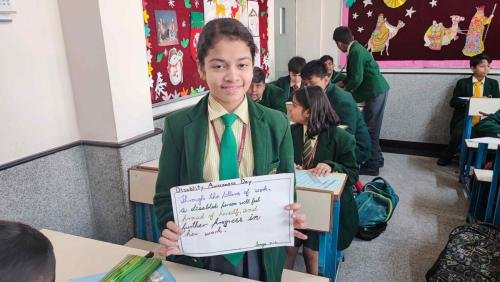 Disability Awareness Day
Through the pillars of work,
a disabled person will feel
proud of herself, and
further progress in
her work.